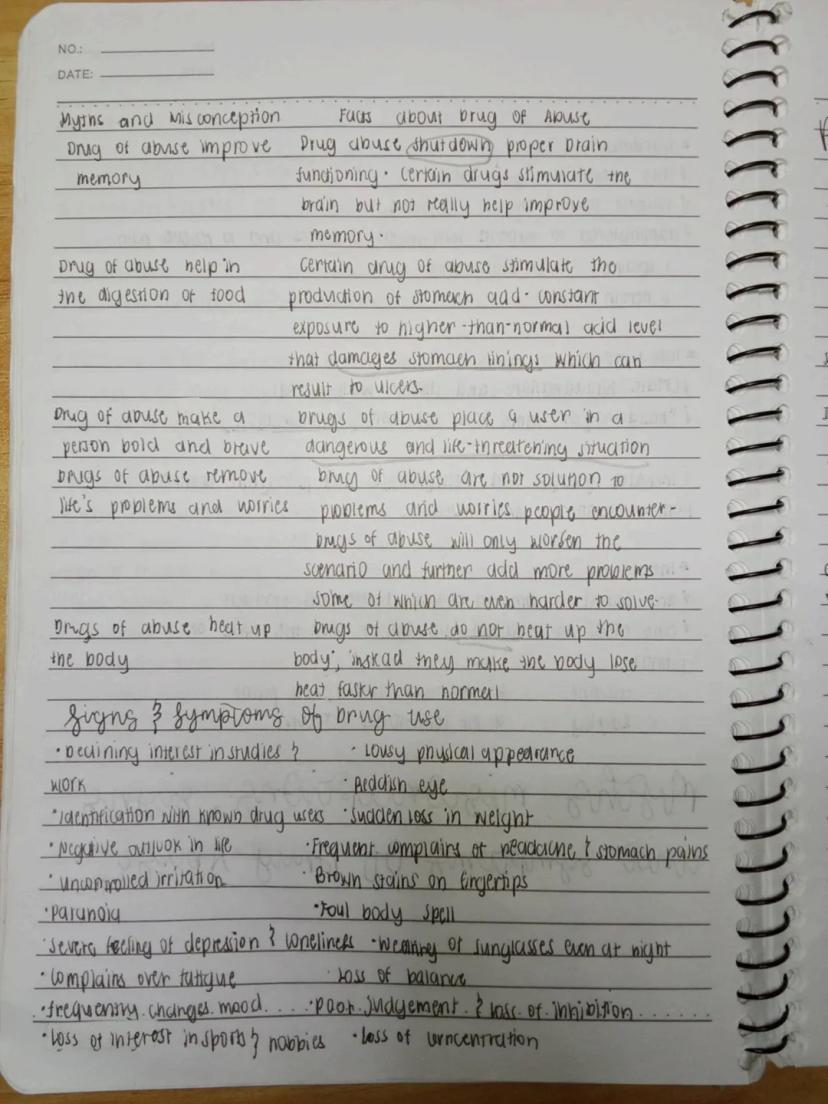 NO.:
DATE:
Myths and Misconception Facts about Drug of Abuse
Drug of abuse improve Drug abuse shutdown proper brain
memory functioning. Certain drugs stimulate the
brain but not really help improve
memory.
Drug of abuse help in Certain drug of abuse stimulate the
the digestion of food production of stomach acid. constant
exposure to higher-than-normal acid level
that damages stomach linings which can
result to ulcers.
Drug of abuse make a Drugs of abuse place a user in a
person bold and brave dangerous and life-threatening situation
Drugs of abuse remove Drug of abuse are not solution to
life's problems and worries problems and worries people encounter.
Drugs of abuse will only worsen the
scenario and further add more problems
some of which are even harder to solve.
Drugs of abuse heat up Drugs of abuse do not heat up the
the body body; instead they make the body lose
heat faster than normal
Signs & Symptoms of Drug use
• Declining interest in studies & • Lousy physical appearance
work • Reddish eye
• Identification with known drug users • Sudden loss in weight
• Negative outlook in life • Frequent complains of headache & stomach pains
• uncontrolled irritation • Brown stains on fingertips
• Paranoia • Foul body spell
• Severe feeling of depression & loneliness • Wearing of sunglasses even at night
• Complains over fatigue • Loss of balance
• frequently changes mood • Poor judgement & loss of inhibition
• Loss of interest in sports & hobbies • Loss of concentration